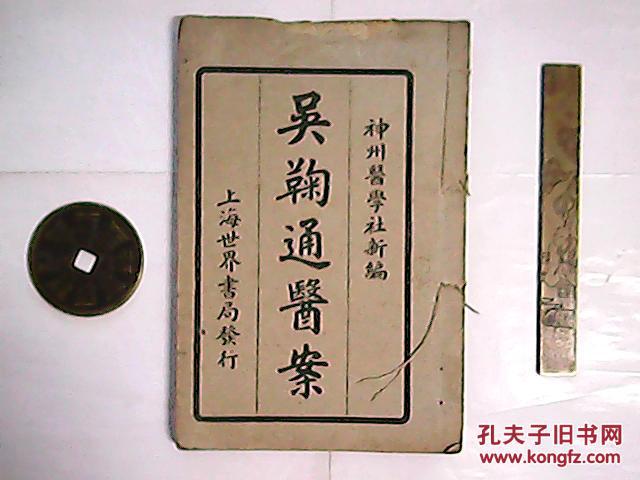 神州醫學社新編
吳鞠通醫案
上海世界書局發行
孔夫子旧书网
www.kongfz.com